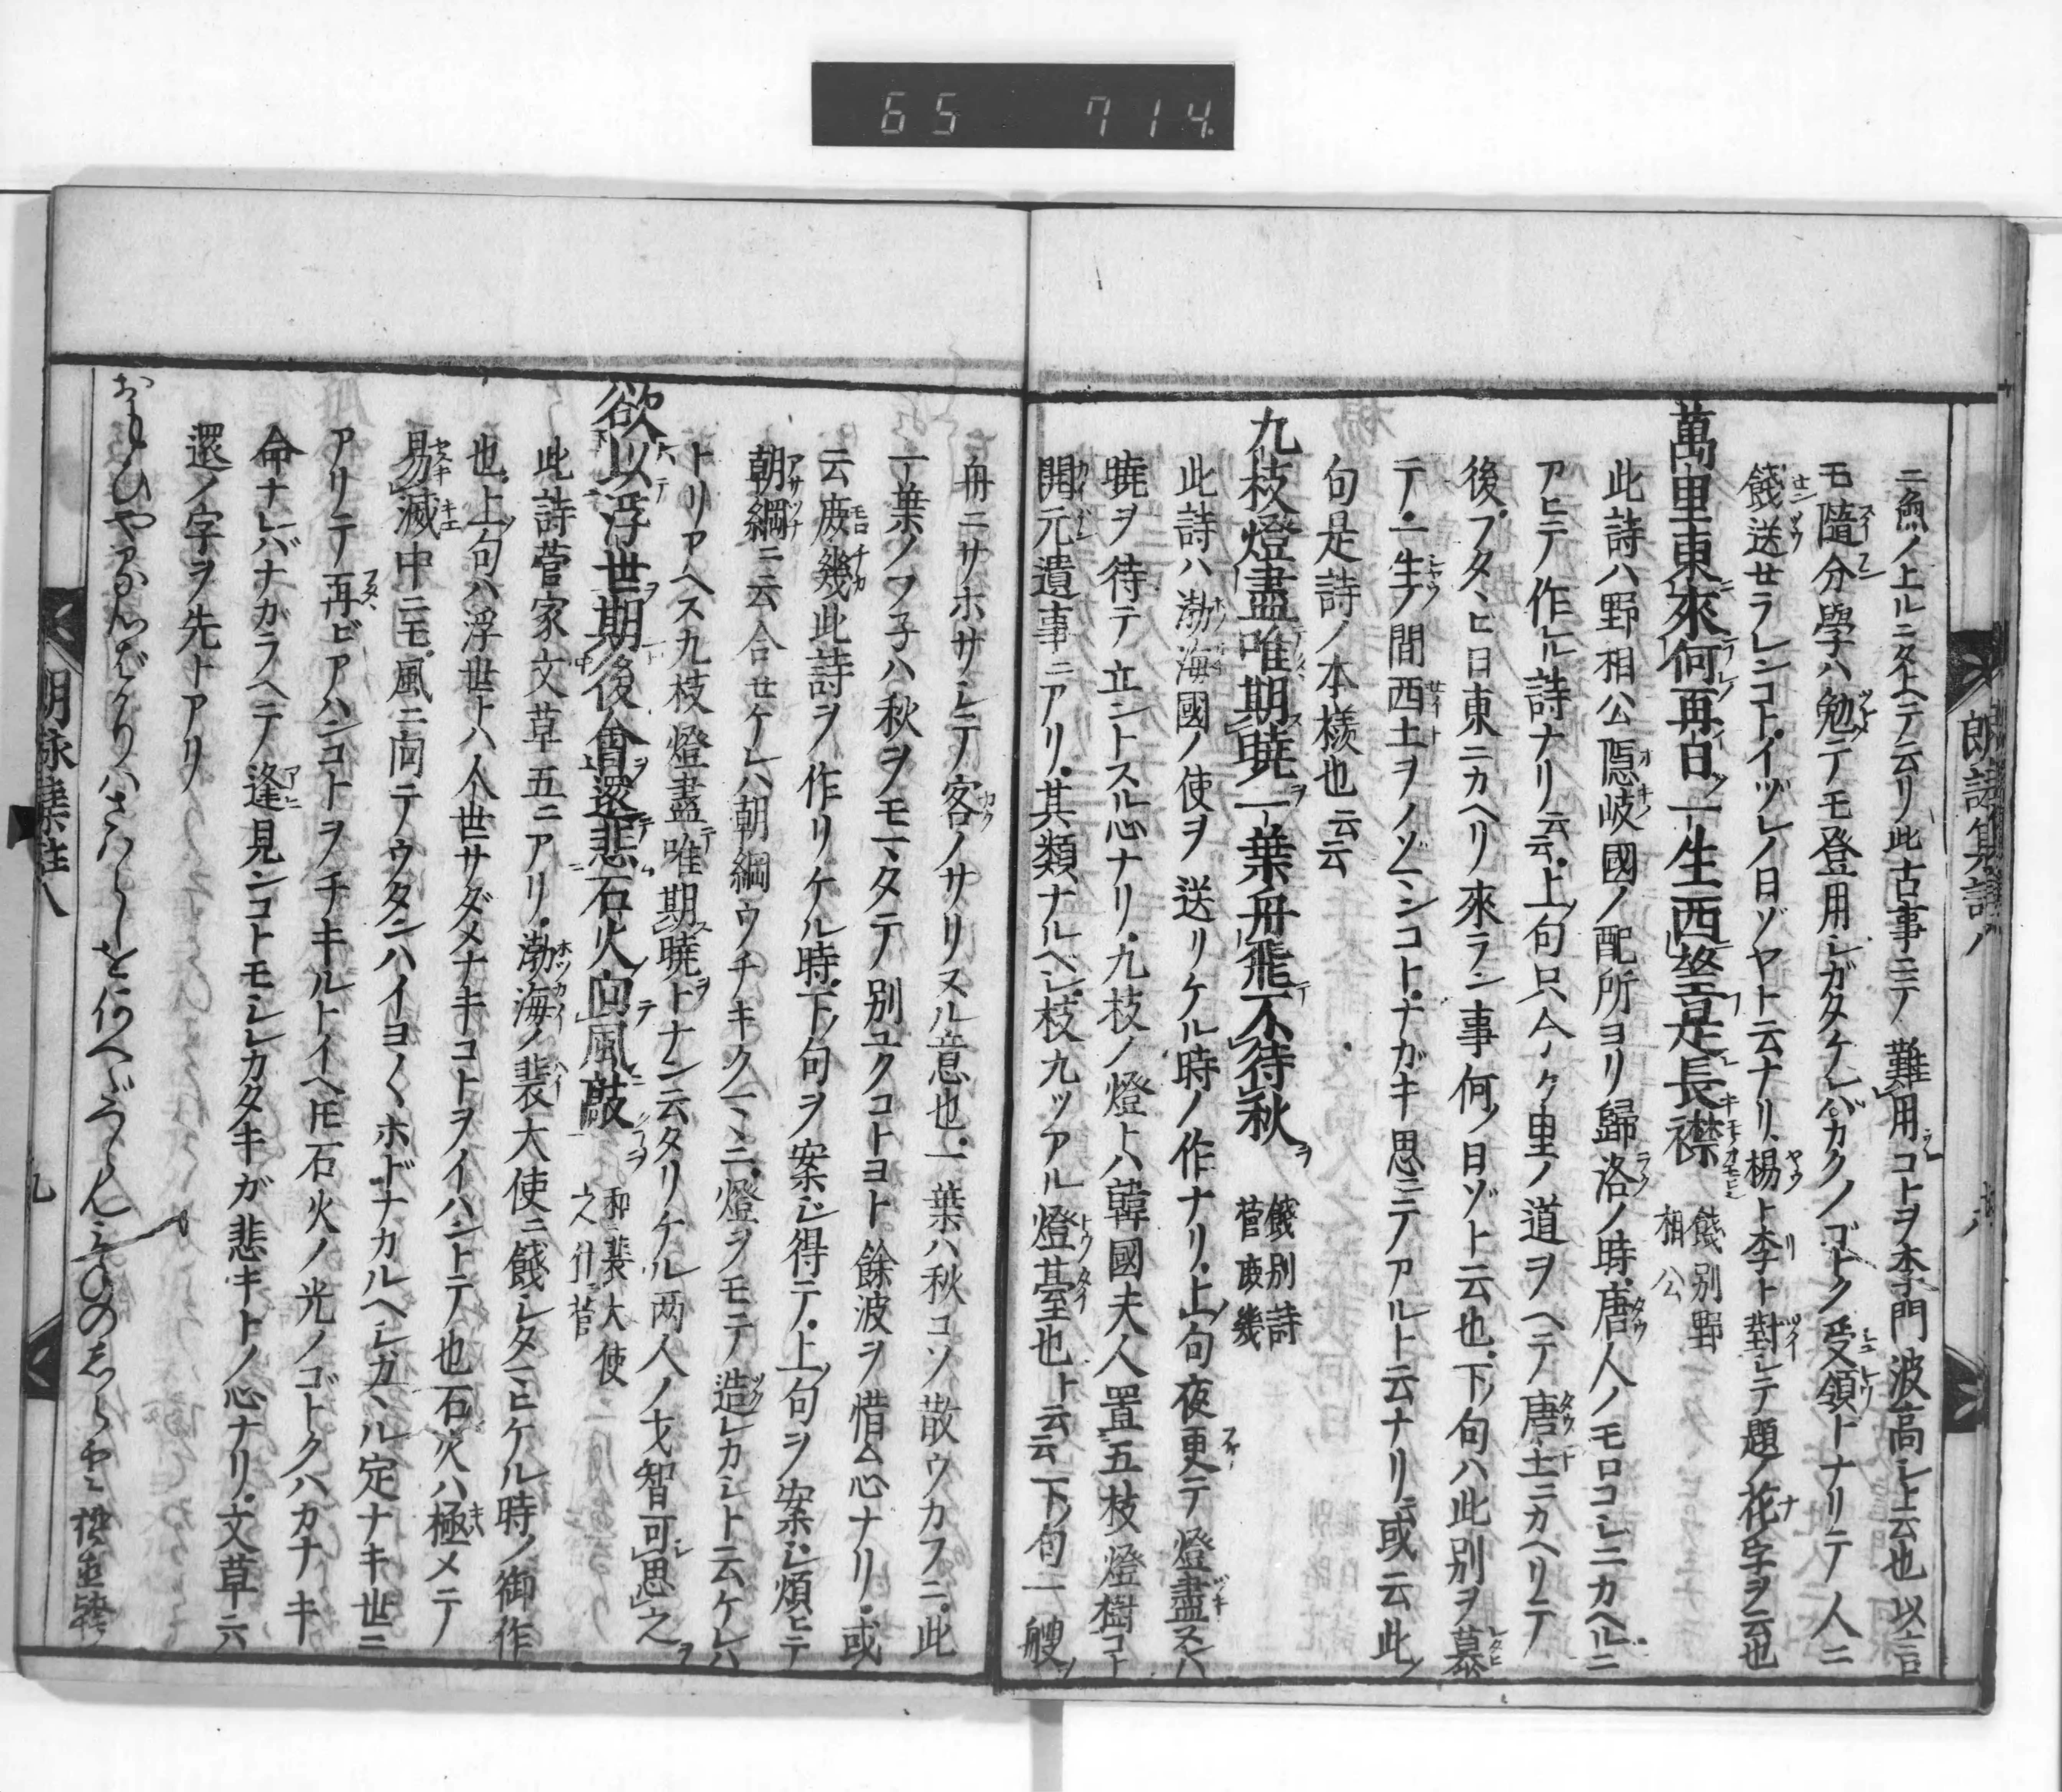 65 714.
ニ魚ノ上ルニタトヘテ云リ此古事ニテ難用コトヲ李門波高シト云也以言
モ隨分學ハ勉テモ登用シガタケレバカクノゴトク受領トナリテ人ニ
餞送セラレンコトイヅレノ日ゾヤト云ナリ楊ト李ト對シテ題ノ花ノ字ヲ云也
萬里東來何再日一生西望是長襟 餞別野相公
此詩ハ野相公隱岐國ノ配所ヨリ歸洛ノ時唐人ノモロコシニカヘルニ
アヒテ作レル詩ナリ云云上ノ句只今ハルケキ里ノ道ヲヘテ唐土ニカヘリテ
後フタヽヒ日東ニカヘリ來ラン事何ノ日ゾト云也下ノ句ハ此別ヲ慕
テ一生ノ間西土ヲノゾマンコトナガキ思ニテアルト云ナリ云云或云此ノ
句是詩ノ本樣也云云
九枝燈盡唯期曉一葉舟飛不待秋 餞別詩菅庶幾
此詩ハ渤海國ノ使ヲ送リケル時ノ作ナリ上ノ句夜更テ燈盡ヌレハ
曉ヲ待テ立ントスル心ナリ九枝ノ燈トハ韓國夫人置五枝燈樹コト
開元遺事ニアリ其類ナルベシ枝九ツアル燈臺也ト云云下ノ句一艘ノ
舟ニサホサシテ客ノサリヌル意也一葉ハ秋コソ散ウカフニ此
一葉ノフ子ハ秋ヲモマタテ別ユクコトヨト餘波ヲ惜ム心ナリ或
云庶幾此詩ヲ作リケル時下ノ句ヲ案シ得テ上ノ句ヲ案シ煩ヒテ
朝綱ニ云合セケレハ朝綱ウチキクマヽニ燈ヲモテ造レカシト云ケレハ
トリアヘス九枝燈盡唯期曉トナン云タリケル两人ノ才智可思之
欲以浮世期後會還悲石火向風敲 和裴大使之什菅
此詩菅家文草五ニアリ渤海ノ裴大使ニ餞シタマヒケル時ノ御作
也上ノ句ハ浮世トハ人世サダメナキコトヲイハントテ也石火ハ極メテ
易滅中ニモ風ニ向テウタンハイヨ〱ホドナカルヘシカヽル定ナキ世ニ
アリテ再ビアハンコトヲチキルトイヘ𪜈石火ノ光ノゴトクハカナキ
命ナレバナガラヘテ逢見ンコトモシレカタキガ悲キトノ心ナリ文草六
還ノ字ヲ先トアリ